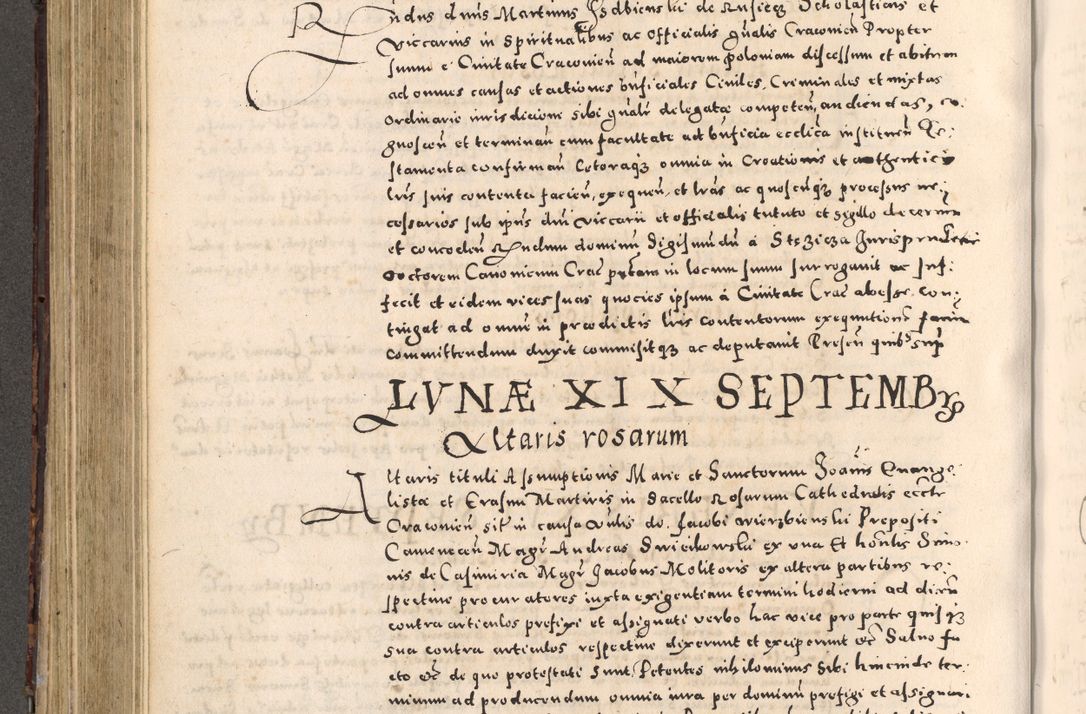 Rndus dnus Martinus Isdbienski de Rusiecz Scholasticus et
Viccarius in Spiritualibus ac Officialis gnalis Cracovien Propter
suum e Civitate Cracovien ad maiorem poloniam discessum et abitum
ad omnes causas et actiones bnficiales Civiles, Criminales et mixtas
ordinarie iurisdicioni sibi gnali delegatae competen, audiendas, co:
gnoscen et terminan cum facultate ad bnficia ecclica instituen Te:
stamenta confirman Ceteraqz omnia in Creationis et authentici
lris suis contenta facien, exequen, et lras ac quoscunqz processus ne:
cessarios sub ipius dni Viccarii et officialis titulo et sigillo decernen
et conceden Rndum dominum Sigismundum a Stezicza Jurisprudentiae
doctorem Canonicum Crac pntem in locum suum surrogavit ac suf:
fecit et eidem vices suas quocies ipsum a Civitate Crac abesse con:
tingat ad omnem in praedictis lris contentorum exequutionem
committendum duxit commisitqz ac deputavit Presen quibs sup
LVNÆ XIX SEPTEMBR
Altaris rosarum
Altaris tituli Assumptionis Marie et Sanctorum Joannis Evange:
listae et Erasmi Martiris in Sacello Rosarum Cathedralis eccle
Cracovien siti in causa vnlis do. Jacobi wierzbienski Prepositi
Camenecen Magr Andreas Swieikowski ex una Et honlis
nis de Casimiria Magr Jacobus Molitoris ex altera partibus re:
spective procuratores iuxta exigentiam termini hodierni ad dicen
contra articulos prefixi et assignati verbo hac vice pro parte quisqz
sua contra articulos respective dixerunt et exceperunt etc Salvo fa
cto etc de quo protestati sunt, Petentes nihilominus sibi hincinde ter:
minum ad producendum omnia iura per dominum prefigi et assignari